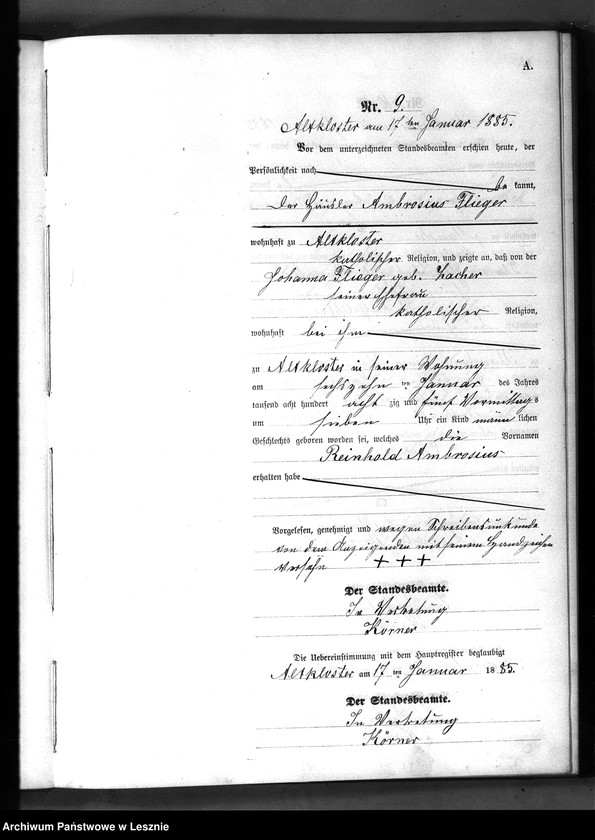 A.
Nr. 9.
Altkloster am 17ten Januar 1885.
Vor dem unterzeichneten Standesbeamten erschien heute, der
Persönlichkeit nach
be kannt,
der Häusler Ambrosius Flieger
wohnhaft zu Altkloster
katholischer Religion, und zeigte an, daß von der
Johanna Flieger geb. Zacher
seiner Ehefrau
katholischer Religion,
wohnhaft bei ihm
zu Altkloster in seiner Wohnung
am sechszehn ten Januar des Jahres
tausend acht hundert acht zig und fünf Vormittag s
um sieben Uhr ein Kind männ lichen
Geschlechts geboren worden sei, welches die Vornamen
Reinhold Ambrosius
erhalten habe
Vorgelesen, genehmigt und wegen Schreibensunkunde
von dem Anzeigenden mit seinem Handzeichen
versehn + + +
Der Standesbeamte.
In Vertretung
Körner
Die Uebereinstimmung mit dem Hauptregister beglaubigt
Altkloster am 17 ten Januar 18 85.
Der Standesbeamte.
In Vertretung
Körner
Archiwum Państwowe w Lesznie